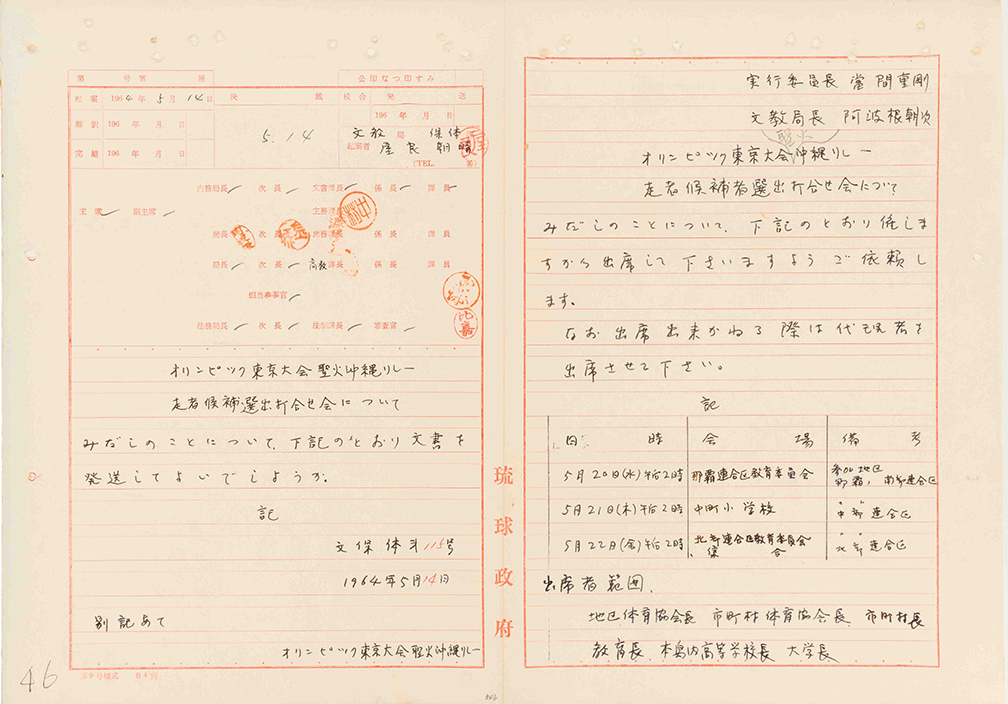 第 号 第 種
公印なつ印すみ
起案 1964年5月14日
決 裁 校合 発 送
5.14
196 年 月 日
翻訳 196 年 月 日
文教 局 保体
完結 196 年 月 日
起案者
(TEL. 番)
内務局長 次長 文書課長 係長 課員
主席 副主席
主務課長
局長 次長 庶務課長 係長 課員
局長 次長 高教課長 係長 課員
担当参事官
法務局長 次長 法制課長 審査官
比嘉
オリンピック東京大会聖火沖縄リレー
走者候補選出打合せ会について
みだしのことについて、下記のとおり文書を
発送してよいでしようか。
記
文保体第115号
1964年5月14日
別記あて
オリンピック東京大会聖火沖縄リレー
琉球政府
46
実行委員長 當間重剛
文教局長 阿波根朝次
聖火
オリンピック東京大会沖縄リレー
走者候補者選出打合せ会について
みだしのことについて、下記のとおり催しま
すから出席して下さいますようご依頼し
ます。
なお出席出来かねる際は代理者を
出席させて下さい。
記
日 時 会 場 備 考
5月20日(水)午后2時 那覇連合区教育委員会 参加地区 那覇, 南部連合区
5月21日(木)午后2時 中町小学校 〃 中部連合区
5月22日(金)午后2時 北部連合区教育委員会 〃 北部連合区
出席者範囲、
地区体育協会長 市町村体育協会長 市町村長
教育長、本島内高等学校長 大学長